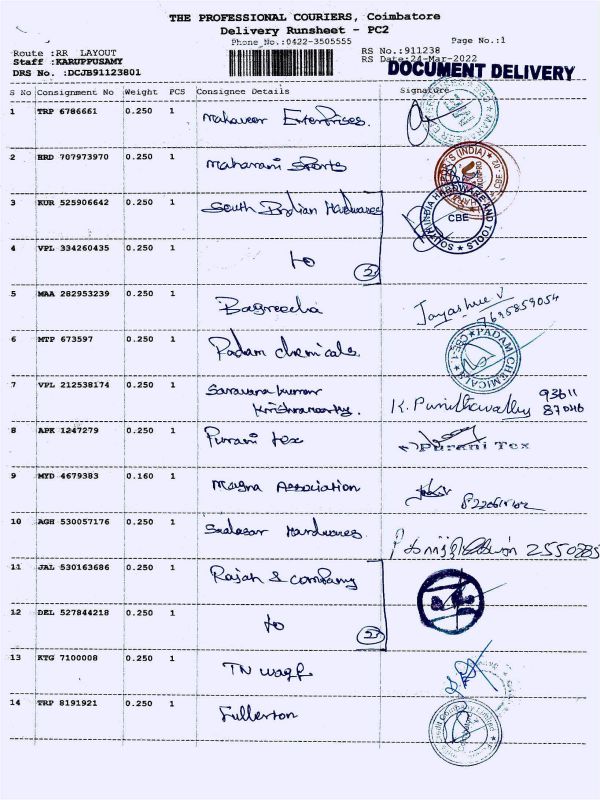 THE PROFESSIONAL COURIERS, Coimbatore
Delivery Runsheet - PC2
Phone No.:0422-3505555
Page No.:1
Route :RR LAYOUT
RS No.:911238
Staff :KARUPPUSAMY
RS Date:24-Mar-2022
DRS No. :DCJB91123801
DOCUMENT DELIVERY
S No Consignment No Weight PCS Consignee Details Signature
1 TRP 6786661 0.250 1 Mahaveer Enterprises.
2 HRD 707973970 0.250 1 Maharani Sports
3 KUR 525906642 0.250 1 South Indian Hardwares
SOUTH INDIA HARDWARE AND TOOLS CBE
4 VPL 334260435 0.250 1 to 2
5 MAA 282953239 0.250 1 Bagreecha Jayashree V
7695859054
6 MTP 673597 0.250 1 Padam chemicals
PADAM CHEMICALS CBE-1
7 VPL 212538174 0.250 1 Saravana kumar
Krishnamoorthy. K. Punithavathy 93611
87046
8 APK 1247279 0.250 1 Purani tex Purani Tex
9 MYD 4679383 0.160 1 Magna Association
10 AGH 530057176 0.250 1 Saalasar Hardwares 2550285
11 JAL 530163686 0.250 1 Rajah & company
12 DEL 527844218 0.250 1 to 2
13 KTG 7100008 0.250 1 TN waqf
14 TRP 8191921 0.250 1 Fullerton
Credit Company Limited